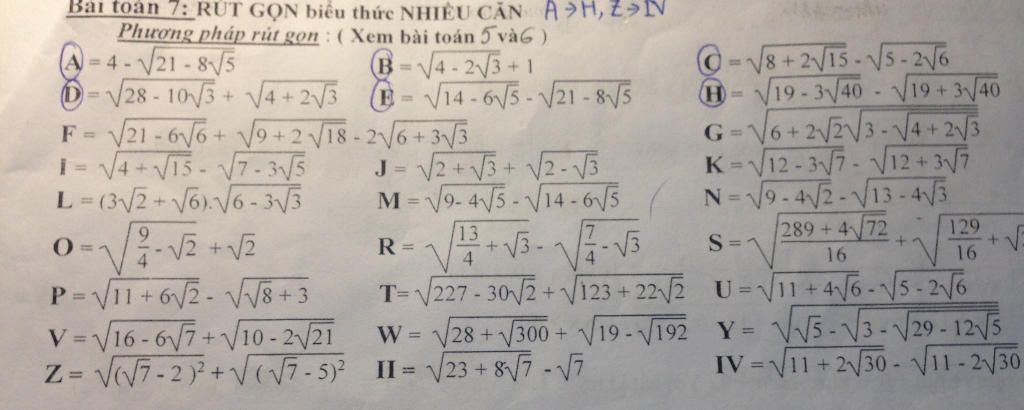 Bài toán 7: RÚT GỌN biểu thức NHIỀU CĂN A→H, Z→IV
Phương pháp rút gọn : ( Xem bài toán 5 và 6 )
A = 4 - √(21 - 8√5) B = √(4 - 2√3) + 1 C = √(8 + 2√15) - √(5 - 2√6)
D = √(28 - 10√3) + √(4 + 2√3) E = √(14 - 6√5) - √(21 - 8√5) H = √(19 - 3√40) - √(19 + 3√40)
F = √(21 - 6√6) + √(9 + 2√18) - 2√(6 + 3√3) G = √(6 + 2√2√(3 - √(4 + 2√3)))
I = √(4 + √15) - √(7 - 3√5) J = √(2 + √3) + √(2 - √3) K = √(12 - 3√7) - √(12 + 3√7)
L = (3√2 + √6).√(6 - 3√3) M = √(9- 4√5) - √(14 - 6√5) N = √(9 - 4√2) - √(13 - 4√3)
O = √(9/4 - √2) + √2 R = √(13/4 + √3) - √(7/4 - √3) S = √((289 + 4√72)/16) + √(129/16 + √
P = √(11 + 6√2) - √(√8 + 3) T= √(227 - 30√2) + √(123 + 22√2) U = √(11 + 4√6) - √(5 - 2√6)
V = √(16 - 6√7) + √(10 - 2√21) W = √(28 + √300) + √(19 - √192) Y = √(√5 - √(3 - √(29 - 12√5)))
Z = √((√7 - 2)²) + √((√7 - 5)²) II = √(23 + 8√7) - √7 IV = √(11 + 2√30) - √(11 - 2√30)